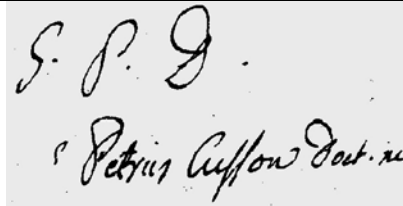 S. P. D.
Petrus Cusson Doct. m